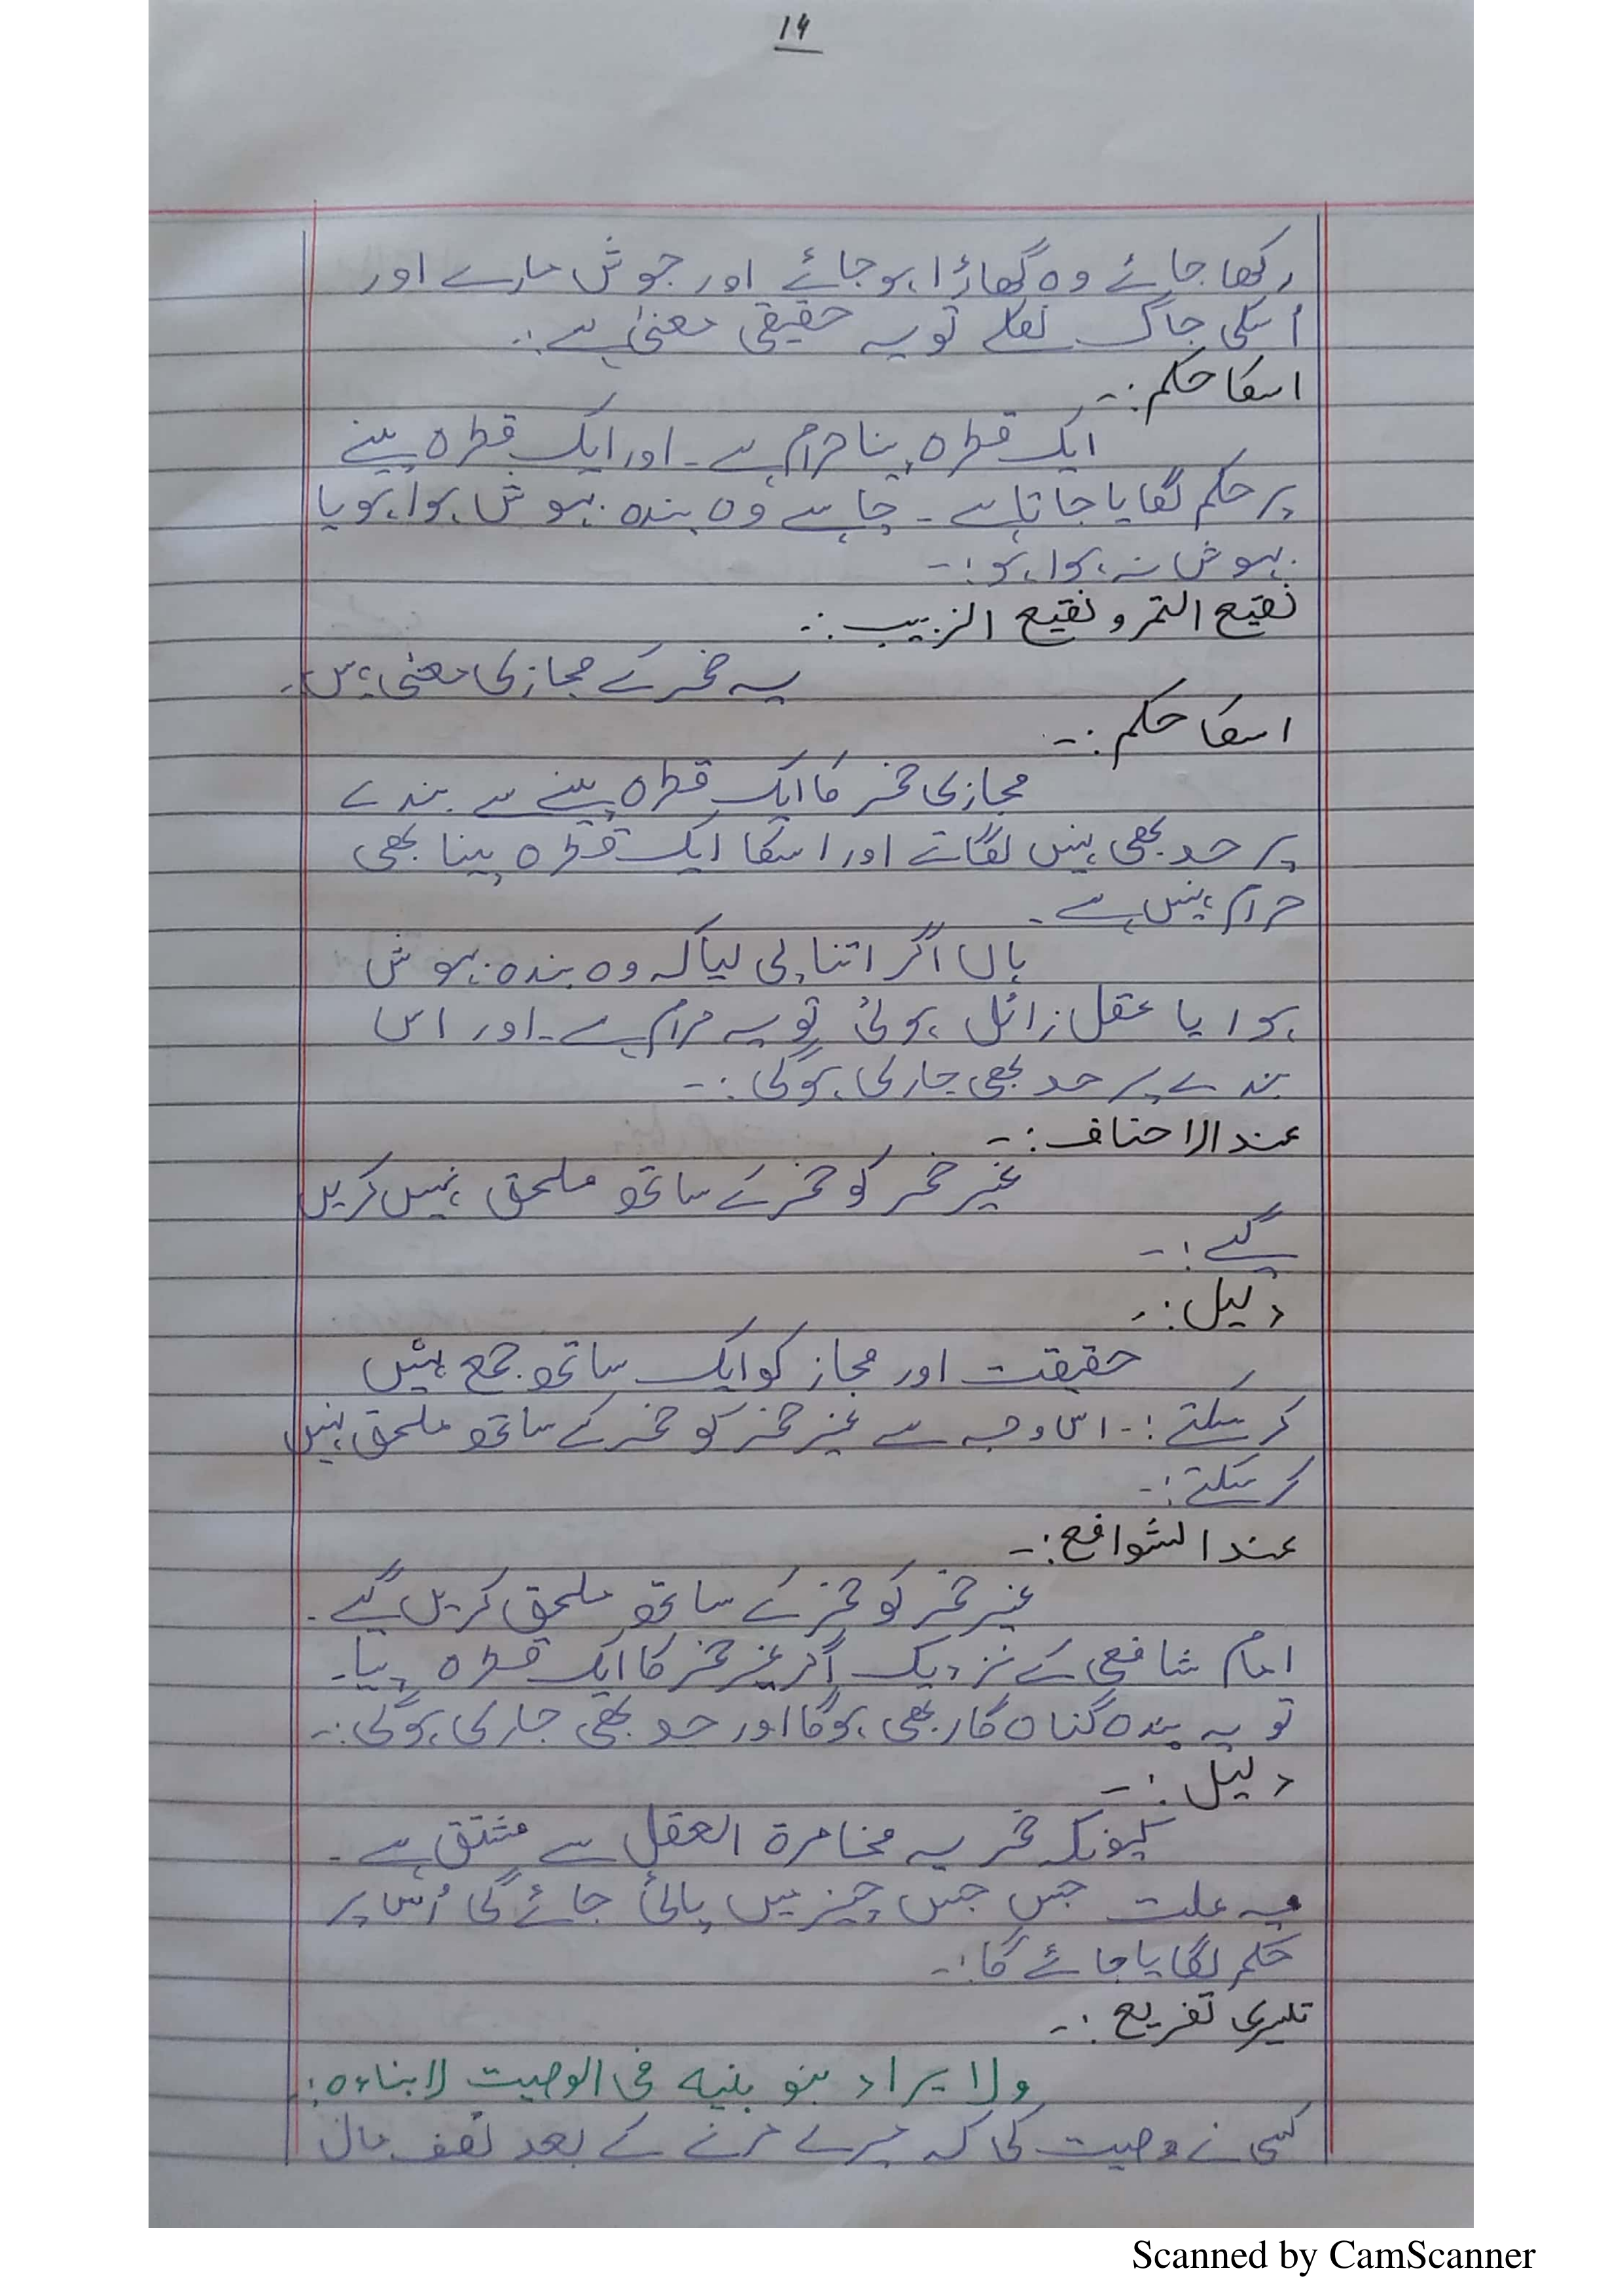 14
رکھا جائے وہ گھاڑا ہوجائے اور جوش مارے اور
اُسکی جاگ نکلے تو یہ حقیقی معنیٰ ہے :۔
اسکا حکم :۔
ایک قطرہ پینا حرام ہے ۔ اور ایک قطرہ پینے
پر حکم لگایا جاتا ہے ۔ چاہے وہ بندہ بہوش ہوا ہو یا
بہوش نہ ہوا ہو :۔
نقیع التمر و نقیع الزبیب :۔
یہ خمر کے مجازی معنیٰ ہیں۔
اسکا حکم :۔
مجازی خمر کا ایک قطرہ پینے سے بندے
پر حد بھی نہیں لگاتے اور اسکا ایک قطرہ پینا بھی
حرام نہیں ہے ۔
ہاں اگر اتنا پی لیا کہ وہ بندہ بہوش
ہوا یا عقل زائل ہوئی تو یہ حرام ہے ۔ اور اس
بندے پر حد بھی جاری ہوگی :۔
عند الاحناف :۔
غیر خمر کو خمر کے ساتھ ملحق نہیں کریں
گے :۔
دلیل :۔
حقیقت اور مجاز کو ایک ساتھ جمع نہیں
کر سکتے :۔ اس وجہ سے غیر خمر کو خمر کے ساتھ ملحق نہیں
کر سکتے :۔
عند الشوافع :۔
غیر خمر کو خمر کے ساتھ ملحق کریں گے ۔
امام شافعی کے نزدیک اگر غیر خمر کا ایک قطرہ پیا۔
تو یہ بندہ گناہ گار بھی ہوگا اور حد بھی جاری ہوگی :۔
دلیل :۔
کیونکہ خمر یہ مخامرة العقل سے مشتق ہے ۔
یہ علت جس جس چیز میں پائی جائے گی اُس پر
حکم لگایا جائے گا :۔
تیسری تفریع :۔
ولا یراد بنو بنیه فی الوصیت لابناءہ :۔
کسی نے وصیت کی کہ میرے مرنے کے بعد نصف مال
Scanned by CamScanner